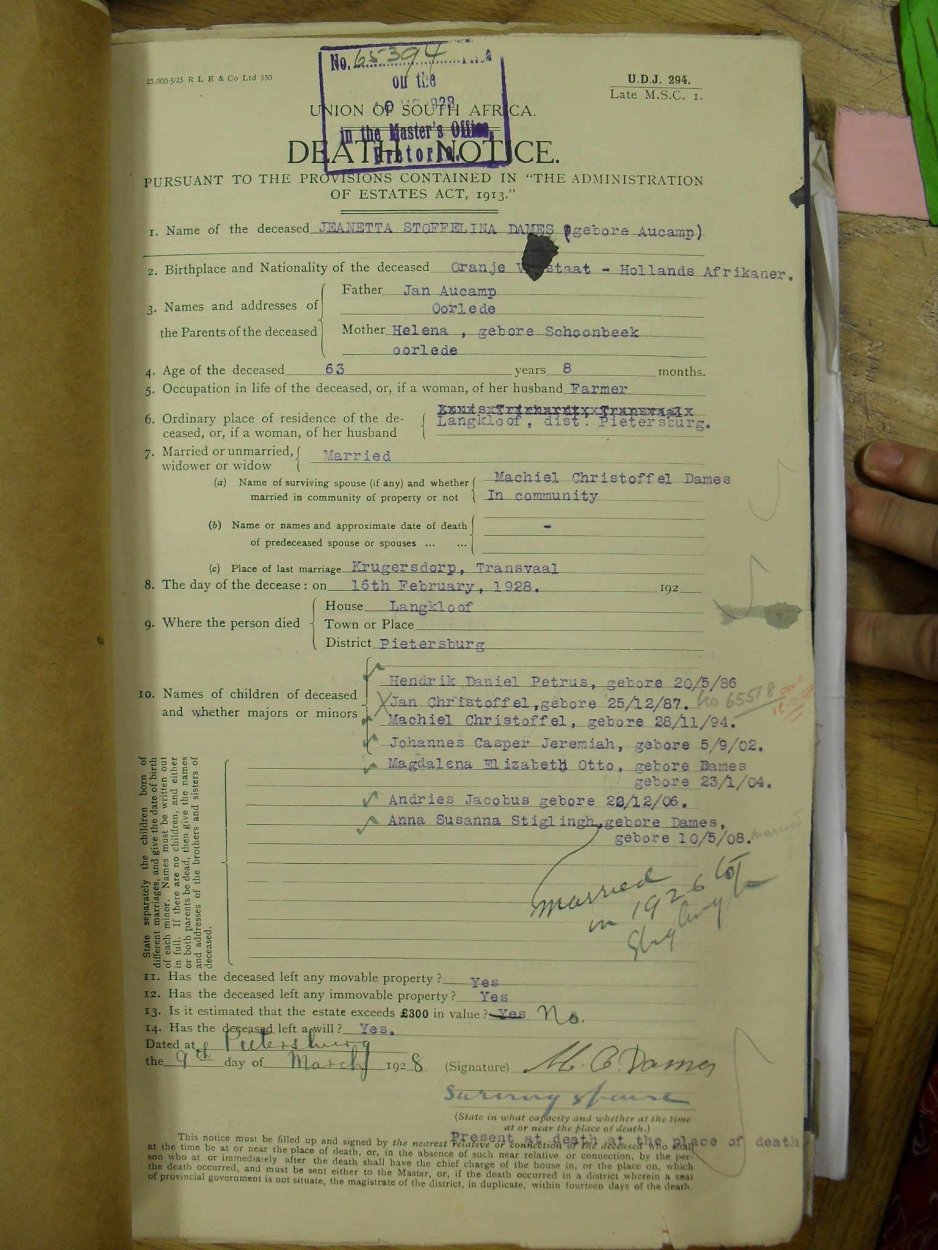 25,000-5/25 R L E & Co Ltd 330
No. 65394
on the
in the Master's Office,
Pretoria.
U.D.J. 294.
Late M.S.C. 1.
UNION OF SOUTH AFRICA.
DEATH NOTICE.
PURSUANT TO THE PROVISIONS CONTAINED IN “THE ADMINISTRATION
OF ESTATES ACT, 1913.”
1. Name of the deceased JEANETTA STOFFELINA DAMES (gebore Aucamp)
2. Birthplace and Nationality of the deceased Oranje Vrystaat - Hollands Afrikaner.
3. Names and addresses of the Parents of the deceased
Father Jan Aucamp
Oorlede
Mother Helena , gebore Schoonbeek
oorlede
4. Age of the deceased 63 years 8 months.
5. Occupation in life of the deceased, or, if a woman, of her husband Farmer
6. Ordinary place of residence of the de-
ceased, or, if a woman, of her husband
Langkloof, dist. Pietersburg.
7. Married or unmarried,
widower or widow
Married
(a) Name of surviving spouse (if any) and whether
married in community of property or not
Machiel Christoffel Dames
In community
(b) Name or names and approximate date of death
of predeceased spouse or spouses ... ...
-
(c) Place of last marriage Krugersdorp, Transvaal
8. The day of the decease: on 16th February, 1928. 192
9. Where the person died
House Langkloof
Town or Place
District Pietersburg
10. Names of children of deceased
and whether majors or minors
Hendrik Daniel Petrus, gebore 20/5/86
Jan Christoffel,gebore 25/12/87. No 65518
Machiel Christoffel, gebore 28/11/94.
Johannes Casper Jeremiah, gebore 5/9/02.
Magdalena Elizabeth Otto, gebore Dames
gebore 23/1/04.
Andries Jacobus gebore 22/12/06.
Anna Susanna Stiglingh,gebore Dames,
gebore 10/5/08. married
married
in 1926 to
State separately the children born of
different marriages, and give the date of birth
of each minor. Names must be written out
in full. If there are no children, and either
or both parents be dead, then give the names
and addresses of the brothers and sisters of
deceased.
11. Has the deceased left any movable property? Yes
12. Has the deceased left any immovable property? Yes
13. Is it estimated that the estate exceeds £300 in value? Yes No.
14. Has the deceased left a will? Yes.
Dated at Pietersburg
the 9th day of March 1928 (Signature) M. C. Dames
Surviving spouse
(State in what capacity and whether at the time
at or near the place of death.)
Present at death at the place of death
This notice must be filled up and signed by the nearest relative or connection of the deceased who shall
at the time be at or near the place of death, or, in the absence of such near relative or connection, by the per-
son who at or immediately after the death shall have the chief charge of the house in, or the place on, which
the death occurred, and must be sent either to the Master, or, if the death occurred in a district wherein a seat
of provincial government is not situate, the magistrate of the district, in duplicate, within fourteen days of the death.